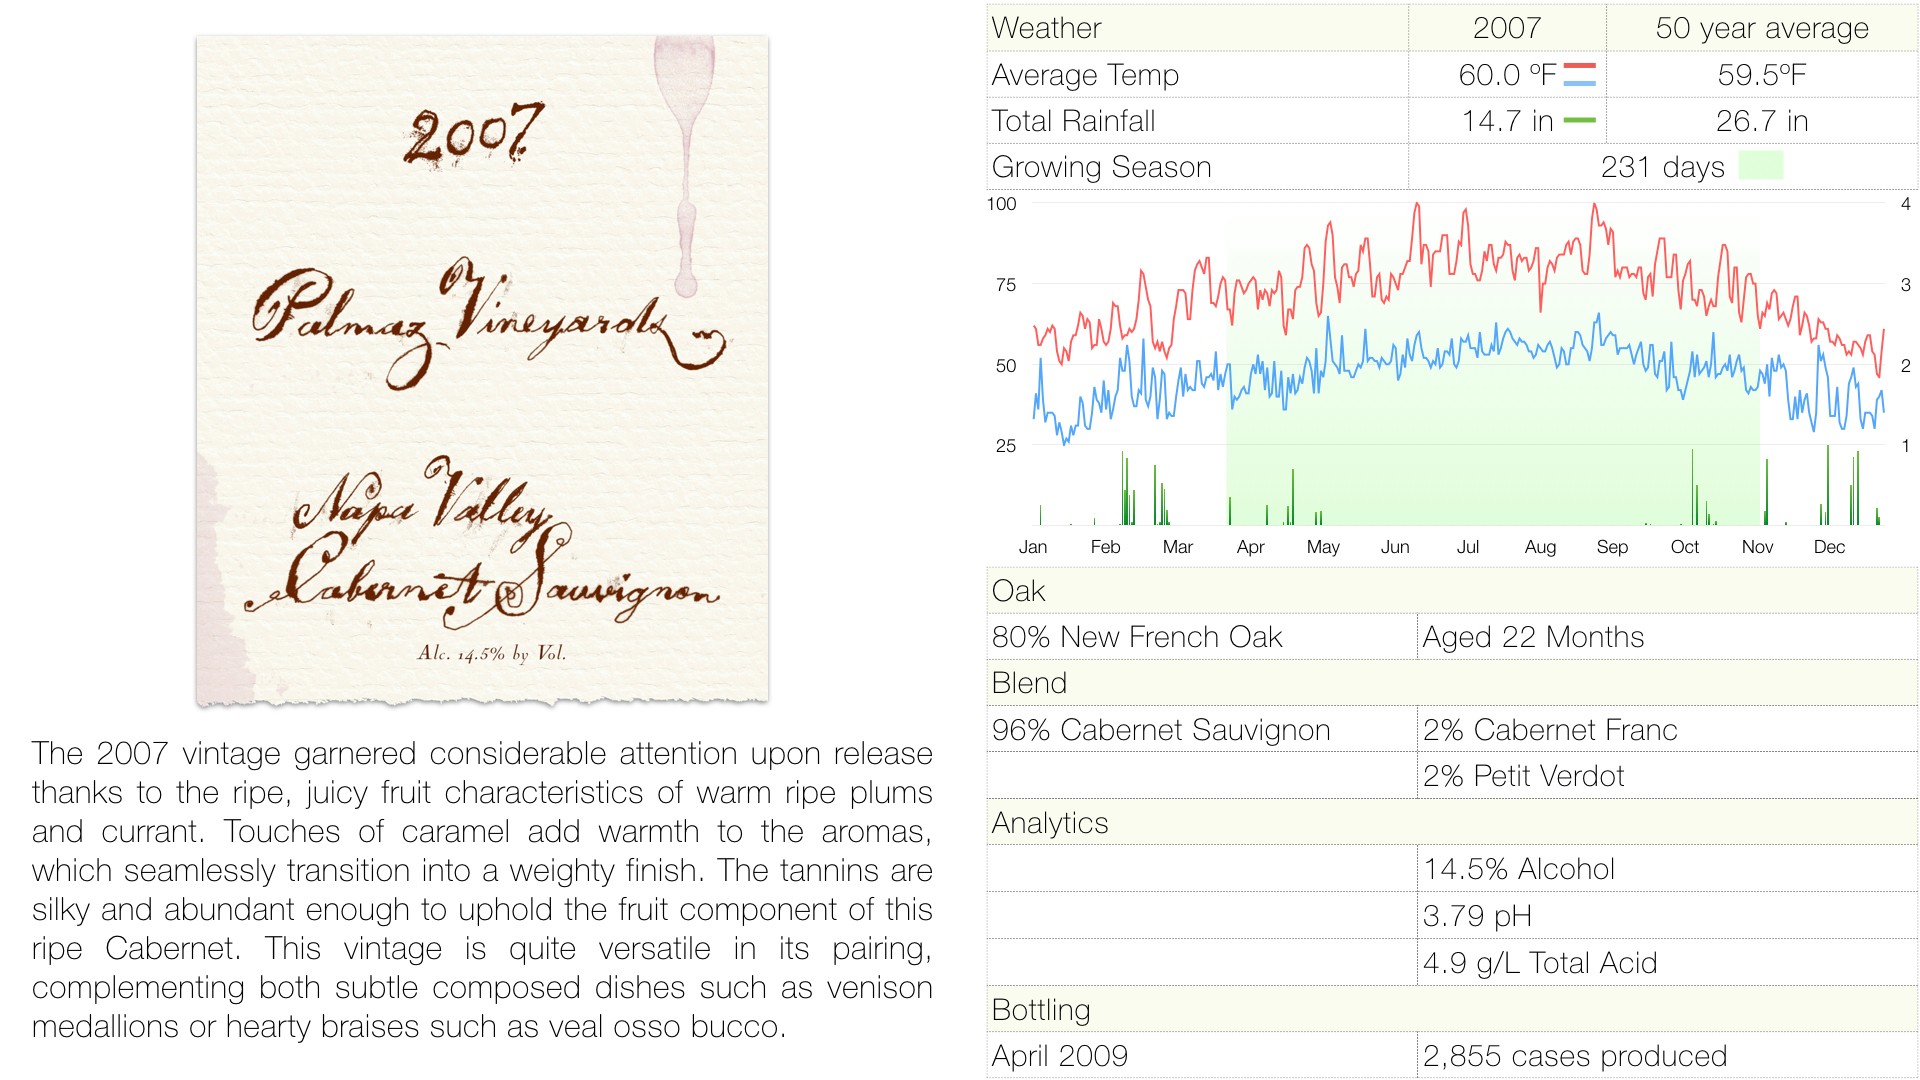 2007
Palmaz Vineyards
Napa Valley
Cabernet Sauvignon
Alc. 14.5% by Vol.
The 2007 vintage garnered considerable attention upon release
thanks to the ripe, juicy fruit characteristics of warm ripe plums
and currant. Touches of caramel add warmth to the aromas,
which seamlessly transition into a weighty finish. The tannins are
silky and abundant enough to uphold the fruit component of this
ripe Cabernet. This vintage is quite versatile in its pairing,
complementing both subtle composed dishes such as venison
medallions or hearty braises such as veal osso bucco.
Weather 2007 50 year average
Average Temp 60.0 ºF 59.5ºF
Total Rainfall 14.7 in 26.7 in
Growing Season 231 days
100 4
75 3
50 2
25 1
Jan Feb Mar Apr May Jun Jul Aug Sep Oct Nov Dec
Oak
80% New French Oak Aged 22 Months
Blend
96% Cabernet Sauvignon 2% Cabernet Franc
2% Petit Verdot
Analytics
14.5% Alcohol
3.79 pH
4.9 g/L Total Acid
Bottling
April 2009 2,855 cases produced